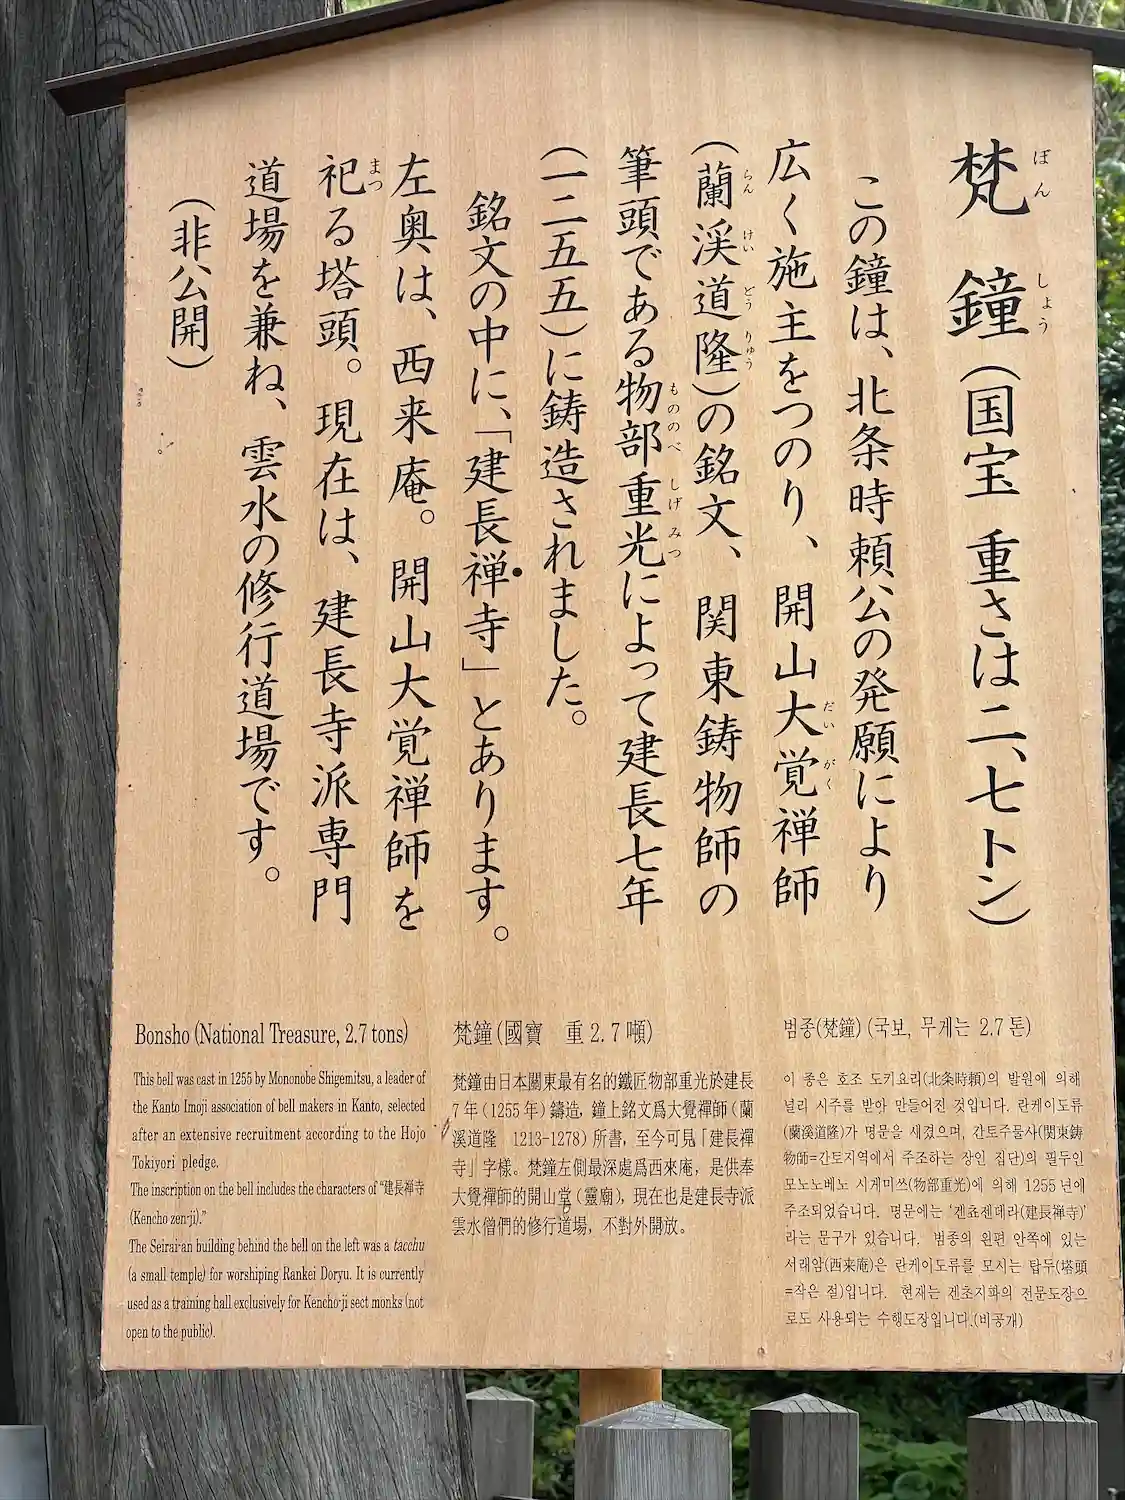 梵鐘（国宝 重さは二、七トン）
この鐘は、北条時頼公の発願により
広く施主をつのり、開山大覚禅師
（蘭渓道隆）の銘文、関東鋳物師の
筆頭である物部重光によって建長七年
（一二五五）に鋳造されました。
銘文の中に、「建長禅寺」とあります。
左奥は、西来庵。開山大覚禅師を
祀る塔頭。現在は、建長寺派専門
道場を兼ね、雲水の修行道場です。
（非公開）
ぼんしょう
だいがく
らんけいどうりゅう
もののべしげみつ
まつ
Bonsho (National Treasure, 2.7 tons)
This bell was cast in 1255 by Mononobe Shigemitsu, a leader of
the Kanto Imoji association of bell makers in Kanto, selected
after an extensive recruitment according to the Hojo
Tokiyori pledge.
The inscription on the bell includes the characters of “建長禅寺
(Kencho zen-ji).”
The Seirai-an building behind the bell on the left was a tacchu
(a small temple) for worshiping Rankei Doryu. It is currently
used as a training hall exclusively for Kencho-ji sect monks (not
open to the public).
梵鐘(國寶 重2.7噸)
梵鐘由日本關東最有名的鐵匠物部重光於建長
7年（1255年）鑄造，鐘上銘文爲大覺禪師（蘭
溪道隆 1213-1278）所書，至今可見「建長禪
寺」字樣。梵鐘左側最深處爲西來庵，是供奉
大覺禪師的開山堂（靈廟），現在也是建長寺派
雲水僧們的修行道場，不對外開放。
범종(梵鐘) (국보, 무게는 2.7톤)
이 종은 호조 도키요리(北条時頼)의 발원에 의해
널리 시주를 받아 만들어진 것입니다. 란케이도류
(蘭溪道隆)가 명문을 새겼으며, 간토주물사(関東鋳
物師=간토지역에서 주조하는 장인 집단)의 필두인
모노노베노 시게미쓰(物部重光)에 의해 1255년에
주조되었습니다. 명문에는 ‘겐쵸젠데라(建長禅寺)’
라는 문구가 있습니다. 범종의 왼편 안쪽에 있는
서래암(西来庵)은 란케이도류를 모시는 탑두(塔頭
=작은 절)입니다. 현재는 겐초지파의 전문도장으
로도 사용되는 수행도장입니다.(비공개)